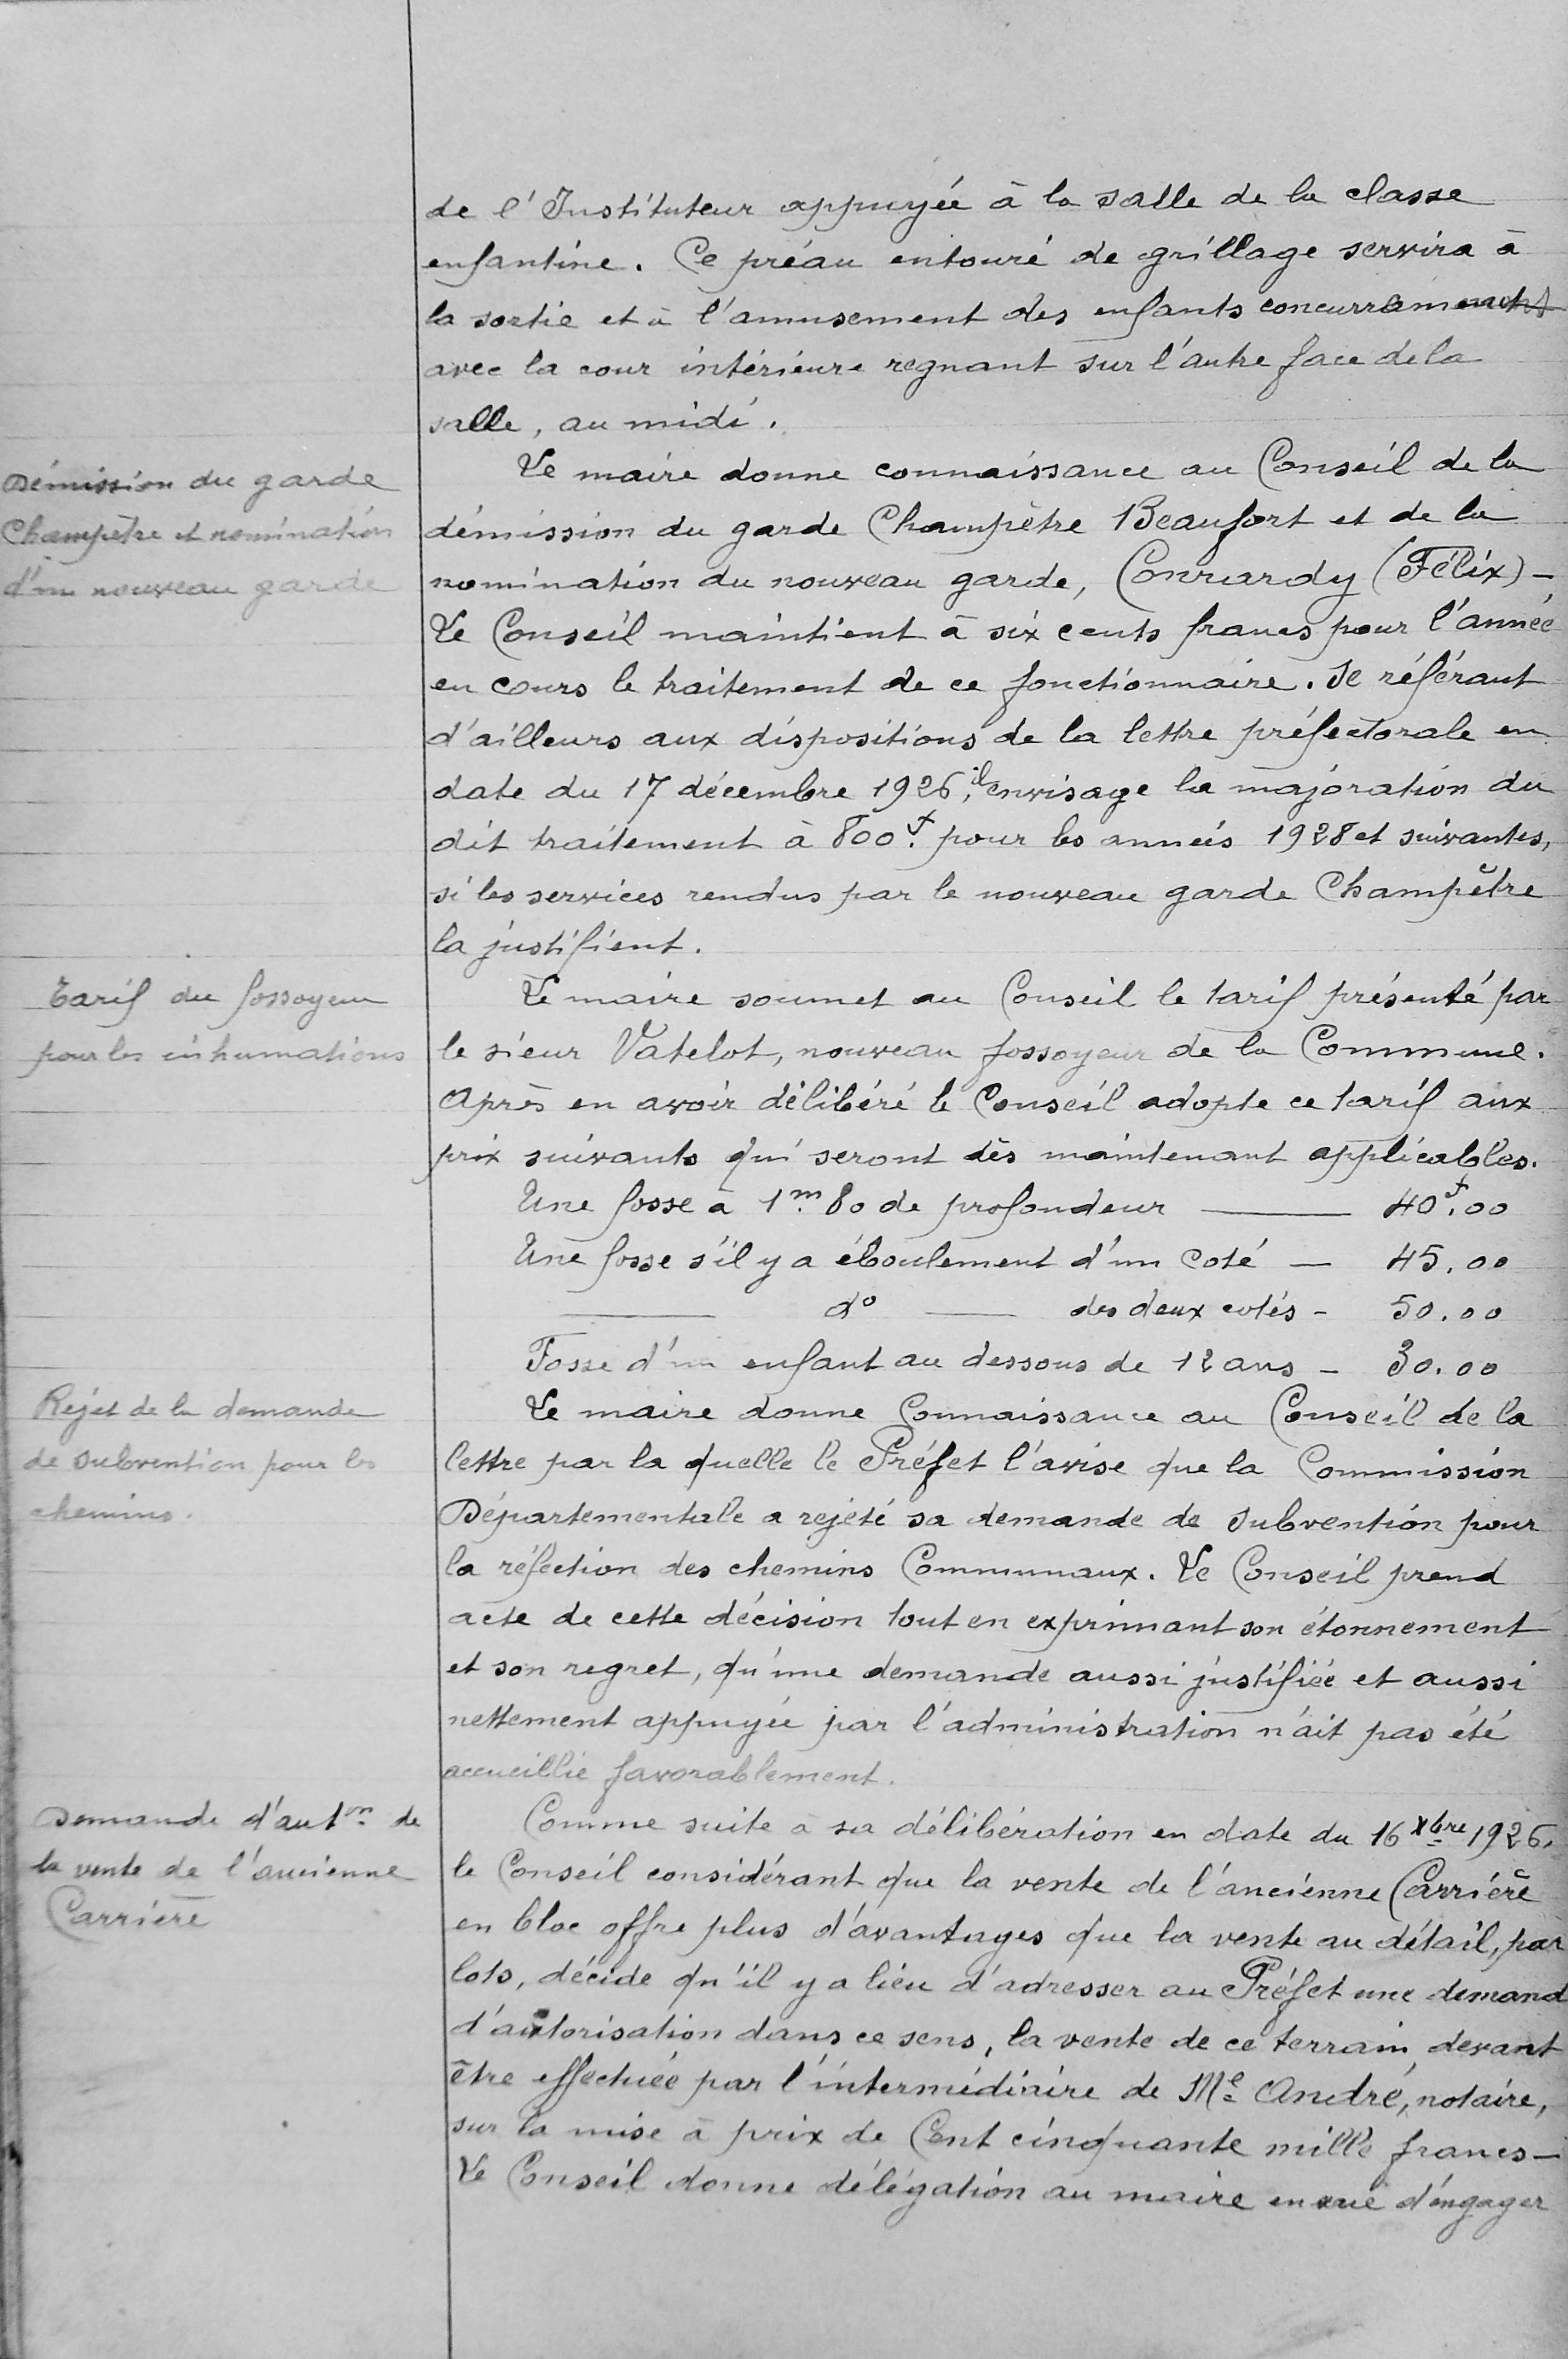 de l'Instituteur appuyée à la salle de la classe
enfantine. Ce préau entouré de grillage servira à
la sortie et à l'amusement des enfants concurramment
avec la cour intérieure regnant sur l'autre face de la
salle, au midi.
Démission du garde
Champêtre et nomination
d'un nouveau garde
Le maire donne connaissance au Conseil de la
démission du garde Champêtre Beaufort et de la
nomination du nouveau garde, Conrardy (Félix) -
Le Conseil maintient à six cents francs pour l'année
en cours le traitement de ce fonctionnaire. Se référant
d'ailleurs aux dispositions de la lettre préfectorale en
date du 17 décembre 1926, il envisage la majoration du
dit traitement à 800f. pour les années 1928 et suivantes,
si les services rendus par le nouveau garde Champêtre
la justifient.
Tarif du fossoyeur
pour les inhumations
Le maire soumet au Conseil le tarif présenté par
le sieur Vatelot, nouveau fossoyeur de la Commune.
Après en avoir délibéré le Conseil adopte ce tarif aux
prix suivants qui seront dès maintenant applicables.
Une fosse à 1m.80 de profondeur — 40f.00
Une fosse s'il y a éboulement d'un coté — 45.00
— do — des deux cotés - 50.00
Fosse d'un enfant au dessous de 12 ans - 30.00
Rejet de la demande
de subvention pour les
chemins.
Le maire donne Connaissance au Conseil de la
lettre par la quelle le Préfet l'avise que la Commission
Départementale a rejeté sa demande de subvention pour
la réfection des chemins Communaux. Le Conseil prend
acte de cette décision tout en exprimant son étonnement
et son regret, qu'une demande aussi justifiée et aussi
nettement appuyée par l'administration n'ait pas été
accueillie favorablement.
Demande d'auton. de
la vente de l'ancienne
Carrière
Comme suite à sa délibération en date du 16 Xbre 1926,
le Conseil considérant que la vente de l'ancienne Carrière
en bloc offre plus d'avantages que la vente au détail, par
lots, décide qu'il y a lieu d'adresser au Préfet une demand
d'autorisation dans ce sens, la vente de ce terrain, devant
être effectuée par l'intermédiaire de Me André, notaire,
sur la mise à prix de Cent cinquante mille francs -
Le Conseil donne délégation au maire en vue d'engager